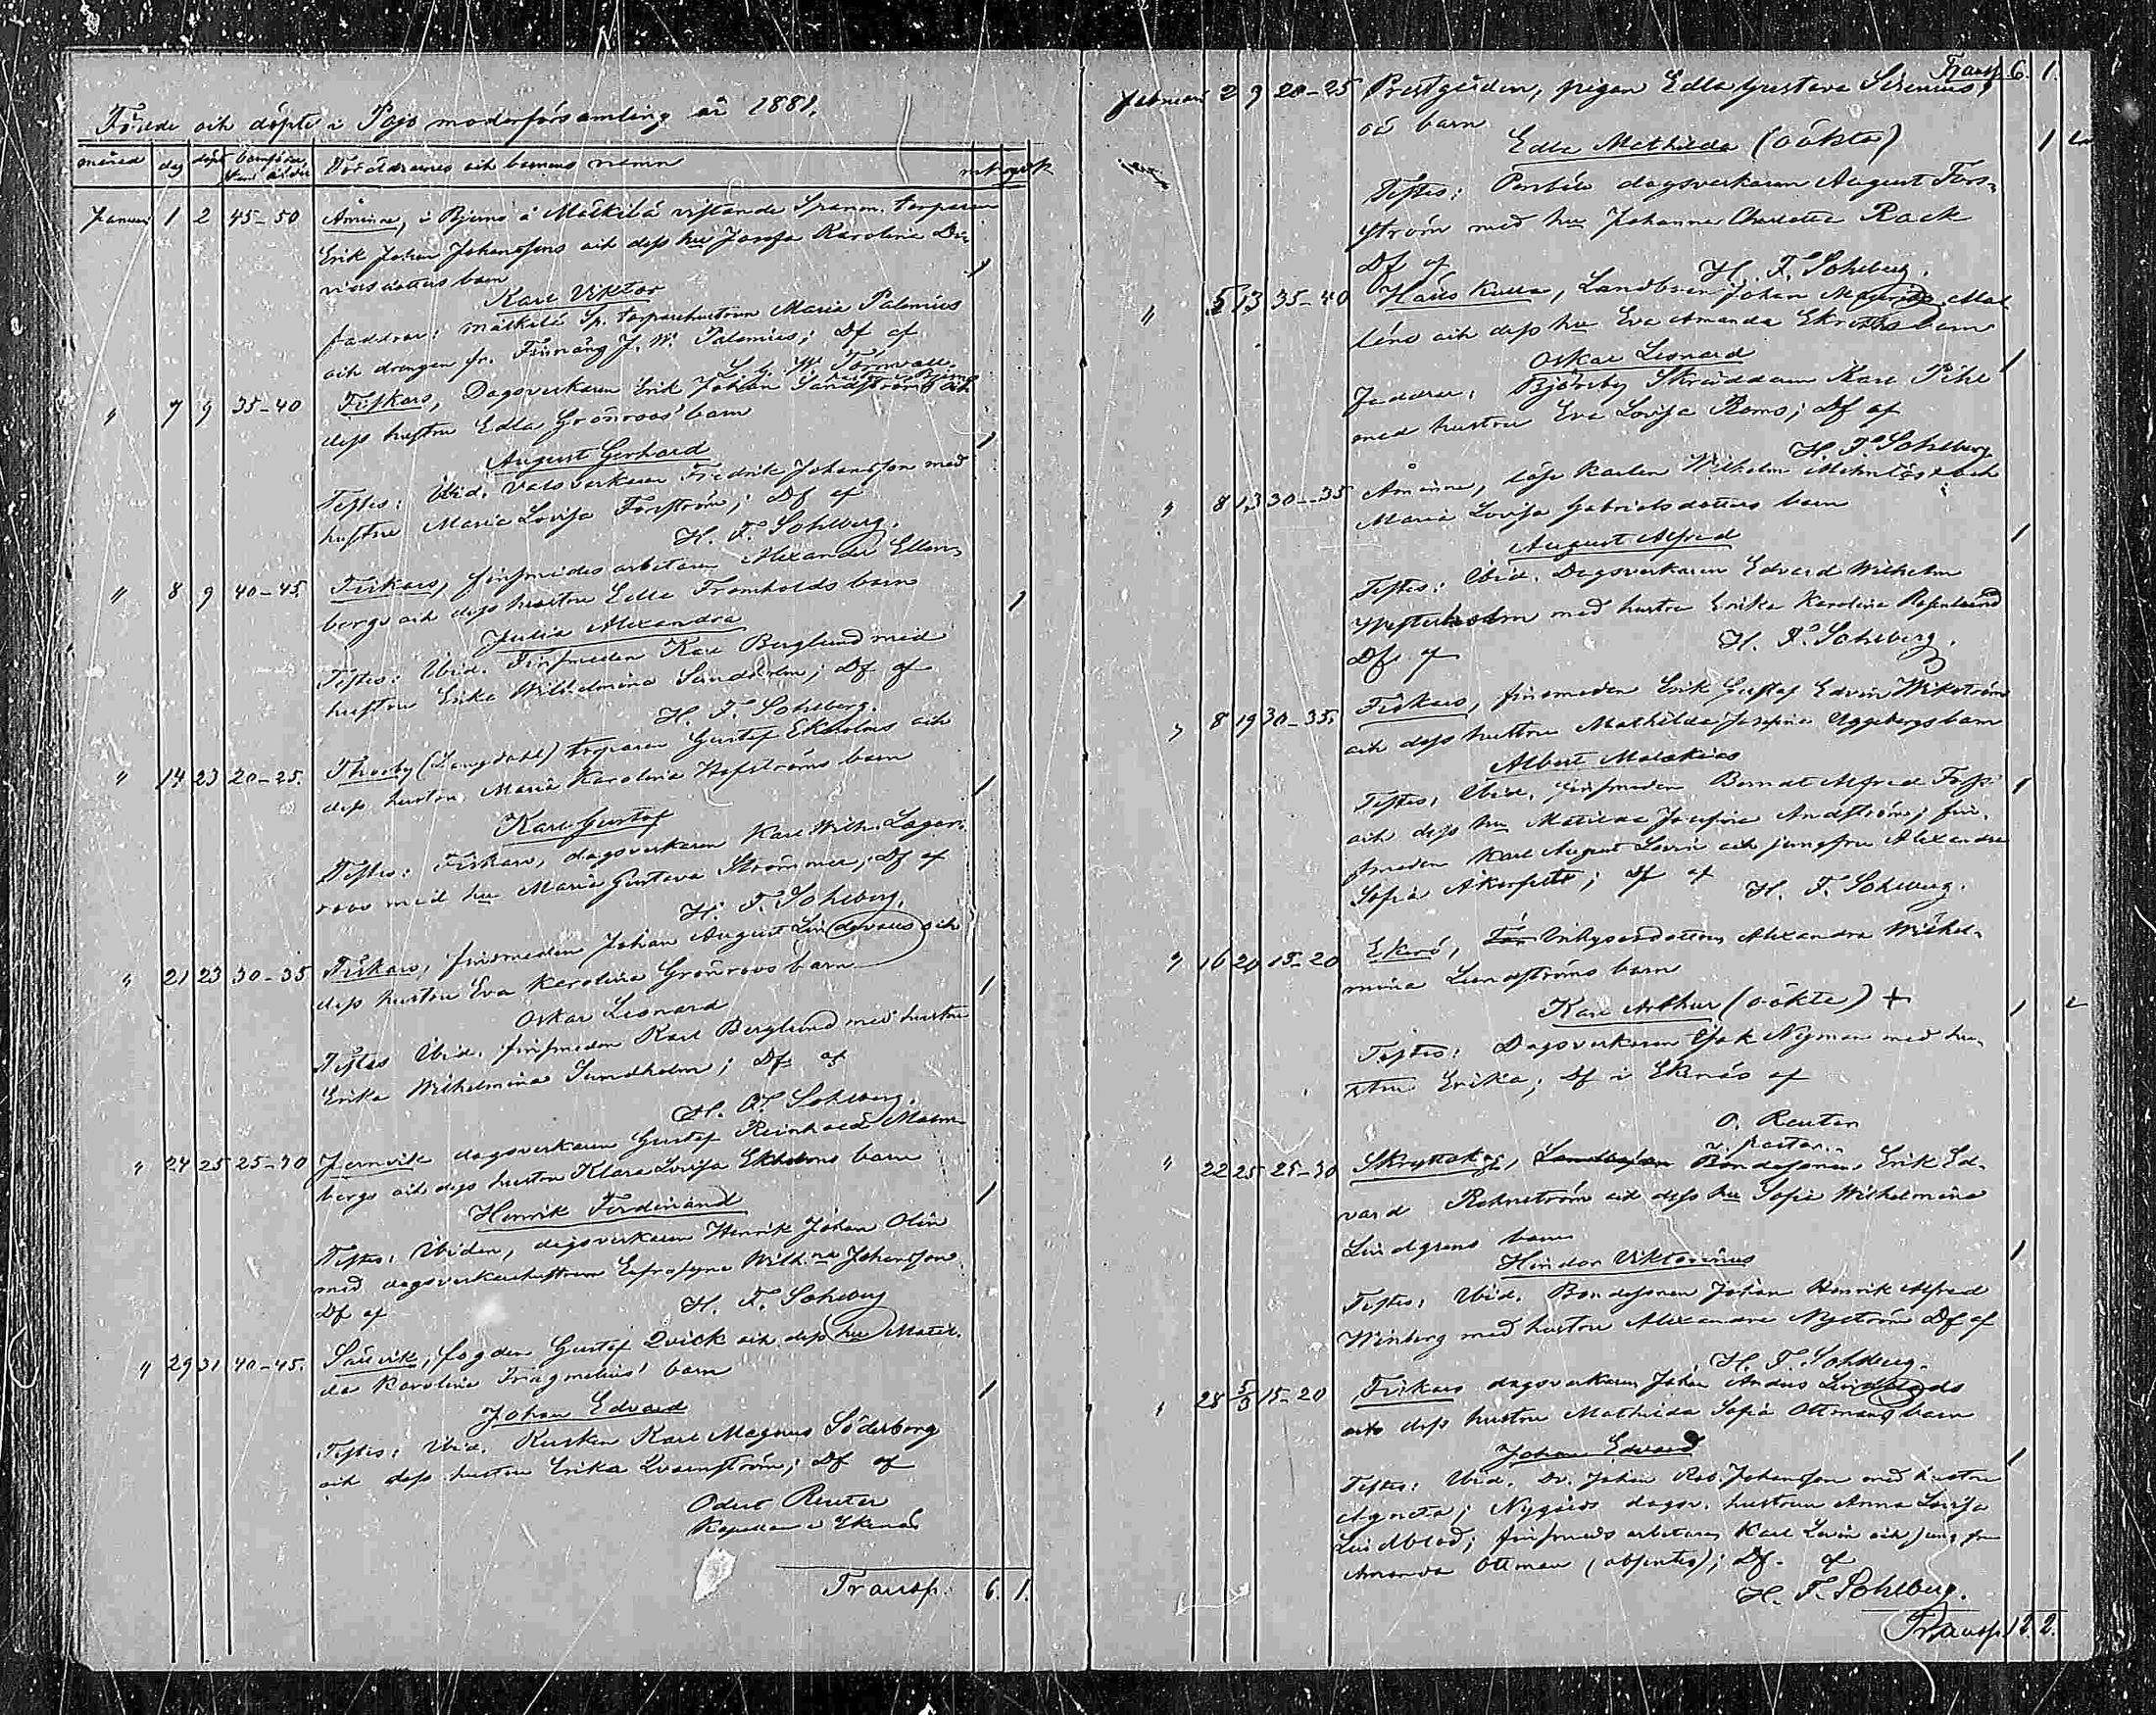 Födde och döpte i Pojo moderförsamling år 1881.
månad dag döpt Barnföder. ålder Föräldrarnes och barnens namn mk qvk
Januari 1 2 45-50 Åminne, i Bjerno å Märkilä vistande torparen
Erik Johan Johanssons och dess hu Josefa Karolina Da-
vidsdotters barn 1
Karl Viktor
faddrar: Märkilä Sp. torparehustrun Maria Palenius
och drängen fr. J. W. Palenius; Df af
L. G. W. Törnvall
" 7 9 35-40 Fiskars, Dagsverkaren Erik Johan Sandströms och
dess hustru Edla Grönroos' barn
August Gerhard 1
Testes: Ibid. Valsverkaren Fredrik Johansson med
hustru Maria Lovisa Forsström; Df af
H. F. Sohlberg.
" 8 9 40-45 Fiskars, finsmidesarbetaren Alexander Ellen-
bergs och dess hustru Edla Fromholds barn
Julia Alexandra 1
Testes: Ibid. Finsmeden Karl Berglund med
hustru Erika Wilhelmina Sundholm; Df af
H. F. Sohlberg.
" 14 23 20-25. Thorby (Långdahl) torparen Gustaf Ekholms och
dess hustru Maria Karolina Hofströms barn
Karl Gustaf 1
Testes: Fiskars, dagsverkaren Karl Wilh. Lager-
roos med hu Maria Gustava Strömmer; Df af
H. F. Sohlberg.
" 21 23 30-35 Fiskars, finsmeden Johan August Lindqvists och
dess hustru Eva Karolina Grönroos barn
Oskar Leonard 1
Testes Ibid. finsmeden Karl Berglund med hustru
Erika Wilhelmina Sundholm; Df af
H. F. Sohlberg.
" 24 25 25-30 Jernvik dagsverkaren Gustaf Reinhold Malm-
bergs och dess hustru Klara Lovisa Ekholms barn
Henrik Ferdinand 1
Testes: Ibidem, dagsverkaren Henrik Johan Olin
med dagsverkarehustrun Eufrosyne Wilh.na Johansson
Df af H. F. Sohlberg
" 29 31 40-45. Sällvik, fogden Gustaf Qvick och dess hu Matil-
da Karolina Fragmelius' barn
Johan Edvard 1
Testes: Ibid. Kusken Karl Magnus Söderborg
och dess hustru Erika Qvarnström; Df af
Odert Reuter
Kapellan i Ekenäs
Transp. 6. 1.
Transp. 6. 1.
Februari 2 9 20-25 Prestgården, pigan Edla Gustava Serenius'
oä barn
Edla Mathilda (oäkta) 1
Testes: dagsverkaren August Fors-
ström med hu Johanna Charlotta Rock
Df af H. F. Sohlberg.
" 5 13 35-40 kulla, Landbonden Johan Mal-
léns och dess hu Eva Amanda Ekroths barn
Oskar Leonard 1
Faddrar: Björsby Skräddaren Karl Pihl
med hustru Eva Lovisa Roms; Df af
H. F. Sohlberg
" 8 13 30-35 Åminne, löse karlen Wilhelm och
Maria Lovisa Gabrielsdotters barn
August Alfred 1
Testes: Ibid. Dagsverkaren Edvard Wilhelm
Westerholm med hustru Erika Karolina Rosenlund
Df. af H. F. Sohlberg.
" 8 19 30-35. Fiskars, finsmeden Erik Gustaf Edvin Wikströms
och dess hustru Mathilda Josefina Uggebergs barn
Albert Malakias
Testes: Ibid. finsmeden Berndt Alfred Foss 1
och dess hu Matilda Josefina Andström; fin-
smeden Karl August Levin och jungfru Alexandra
Sofia Åkerfelt; Df af H. F. Sohlberg.
" 16 20 15-20 Ekerö, Inhysesdottern Alexandra Wilhel-
mina Lundströms barn
Karl Arthur (oäkta) + 1
Testes: Dagsverkaren Isak Nyman med hu-
stru Erika; Df i Ekenäs af
O. Reuter
v. pastor.
" 22 25 25-30 Bondesonen Erik Ed-
vard Rehnström och dess hu Sofia Wilhelmina
Lindgrens barn
Hindor Viktorinus 1
Testes: Ibid. Bondesonen Johan Henrik Alfred
Winberg med hustru Alexandra Nyström Df af
H. F. Sohlberg.
" 28 5/3 15-20 Fiskars dagsverkaren Johan Anders Lindblads
och dess hustru Mathilda Sofia Ottmans barn
Johan Edvard 1
Testes: Ibid. Dv. Johan Rob. Johansson med hustru
Agneta; Nygårds dagsv. hustrun Anna Lovisa
Lindblad; finsmidsarbetaren Karl Levin och jungfru
Amanda Ottman (absentes); Df. af
H. F. Sohlberg.
Transp. 12. 2.